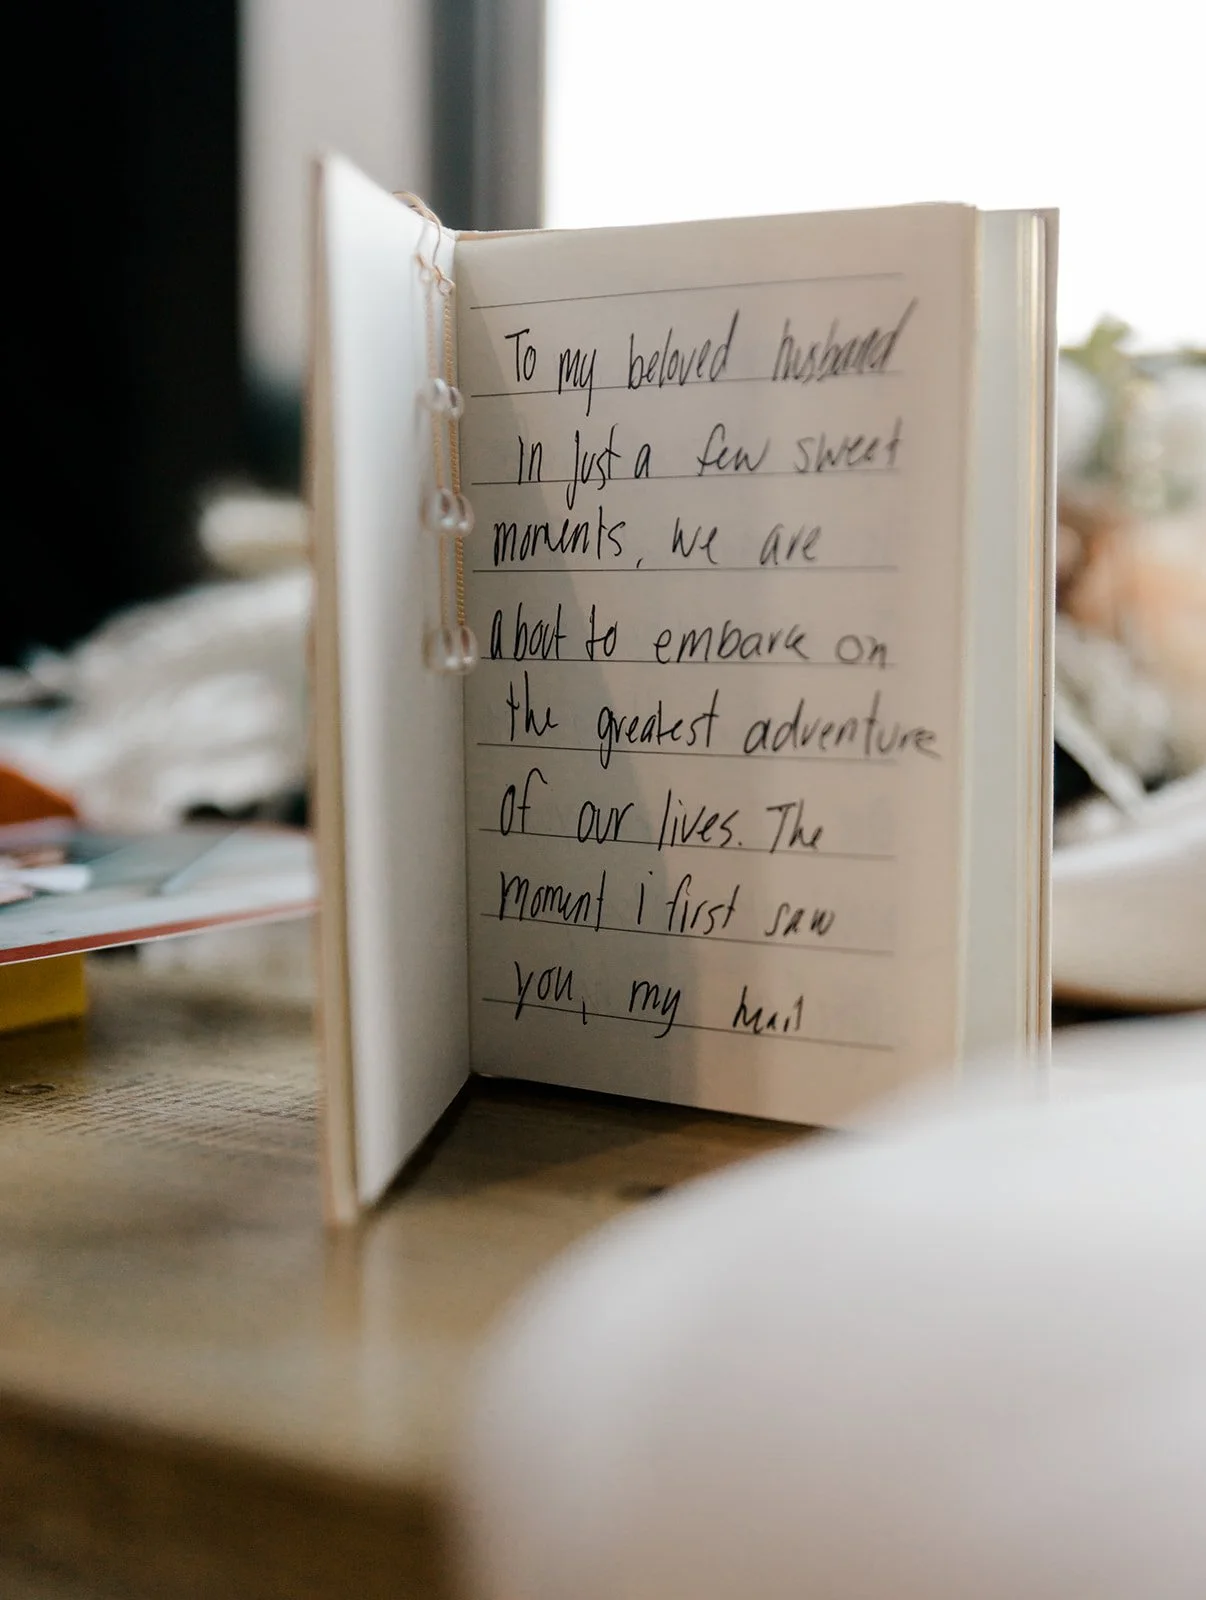 To my beloved husband
In just a few sweet
moments, we are
about to embark on
the greatest adventure
of our lives. The
moment i first saw
you, my